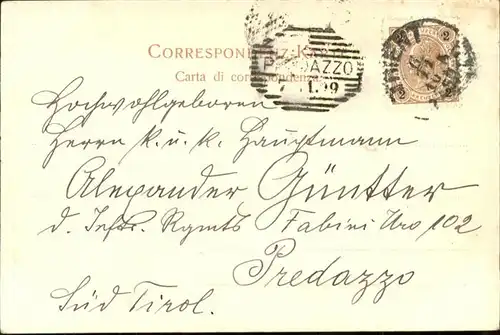 CORRESPONDENZ-KARTE
Carta di corrispondenza
PREDAZZO
Hochwohlgeboren
Herrn k. u. k. Hauptmann
Alexander Güntter
d. Inftr. Rgmts Fabini Nro 102
Predazzo
Süd Tirol.